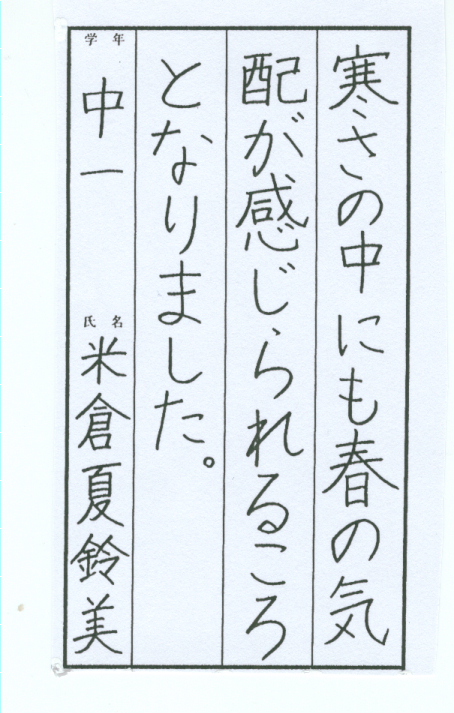 寒さの中にも春の気
配が感じられるころ
となりました。
学年
中一
氏名
米倉夏鈴美